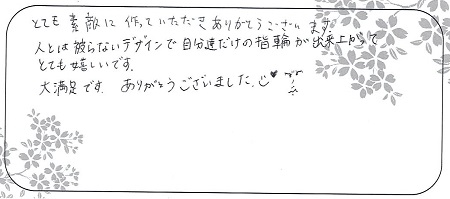 とても素敵に作っていただきありがとうございます。
人とは被らないデザインで自分達だけの指輪が出来上がって
とても嬉しいです。
大満足です。ありがとうございました。